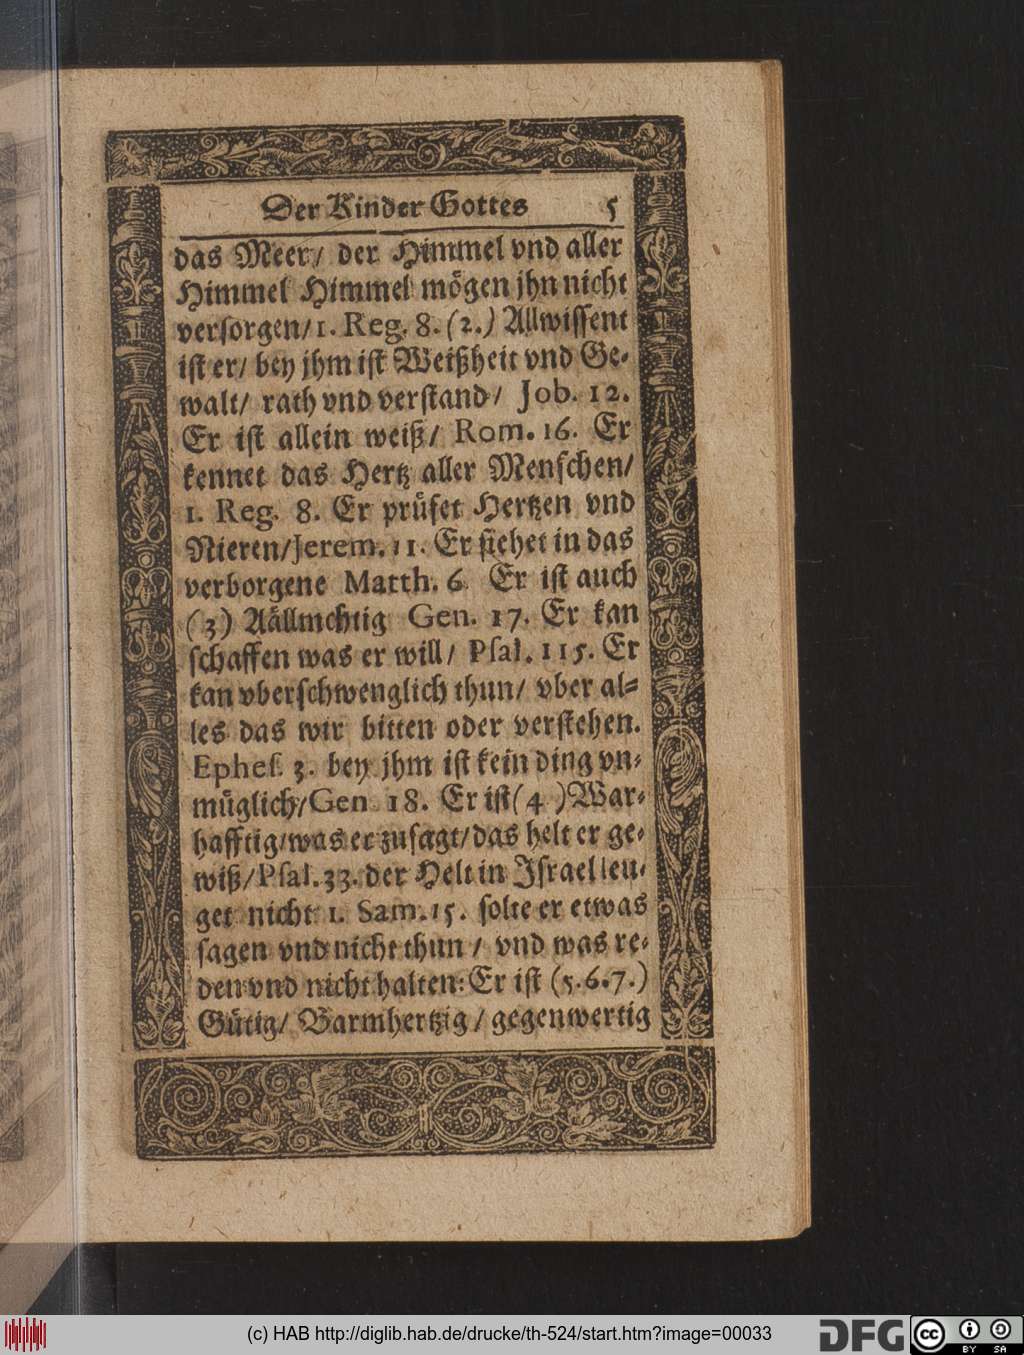 Der Kinder Gottes 5
das Meer/ der Himmel vnd aller
Himmel Himmel mögen jhn nicht
versorgen/1. Reg. 8. (2.) Allwissent
ist er/ bey jhm ist Weißheit vnd Ge-
walt/ rath vnd verstand/ Job. 12.
Er ist allein weiß/ Rom. 16. Er
kennet das Hertz aller Menschen/
1. Reg. 8. Er prüfet Hertzen vnd
Nieren/Jerem. 11. Er siehet in das
verborgene Matth. 6. Er ist auch
(3) Aällmchtig Gen. 17. Er kan
schaffen was er will/ Psal. 115. Er
kan vberschwenglich thun/ vber al-
les das wir bitten oder verstehen.
Ephes. 3. bey jhm ist kein ding vn-
müglich/Gen. 18. Er ist (4 ) War-
hafftig/was er zusagt/das helt er ge-
wiß/Psal. 33. der Helt in Israel leu-
get nicht 1. Sam. 15. solte er etwas
sagen vnd nicht thun / vnd was re-
den vnd nicht halten: Er ist (5.6.7.)
Gütig/ Barmhertzig / gegenwertig
(c) HAB http://diglib.hab.de/drucke/th-524/start.htm?image=00033
DFG
cc BY SA